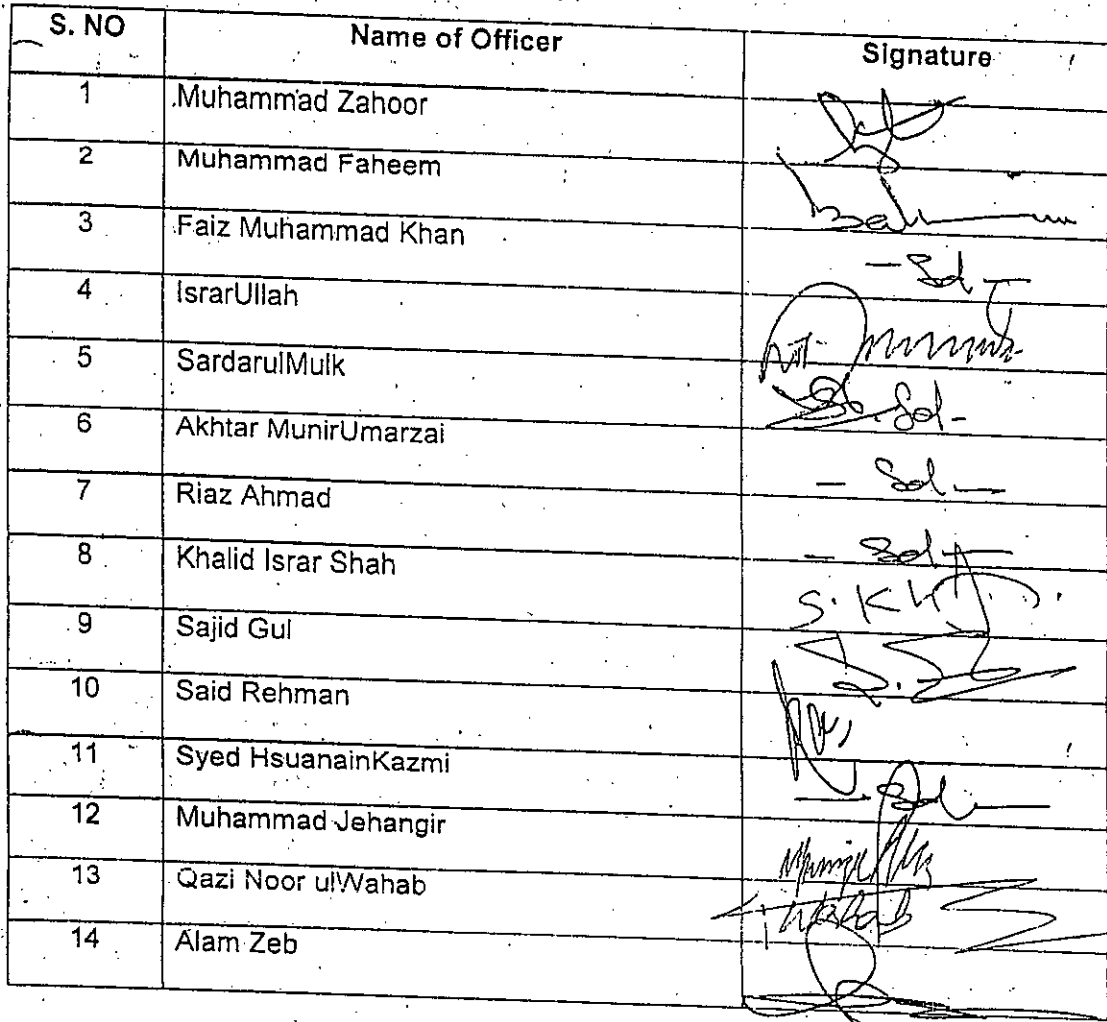 S. NO Name of Officer Signature
1 Muhammad Zahoor
2 Muhammad Faheem
3 Faiz Muhammad Khan - Sd -
4 IsrarUllah
5 SardarulMulk Sd -
6 Akhtar MunirUmarzai - Sd -
7 Riaz Ahmad - Sd -
8 Khalid Israr Shah
9 Sajid Gul
10 Said Rehman
11 Syed HsuanainKazmi - Sd -
12 Muhammad Jehangir
13 Qazi Noor ulWahab Wahab
14 Alam Zeb